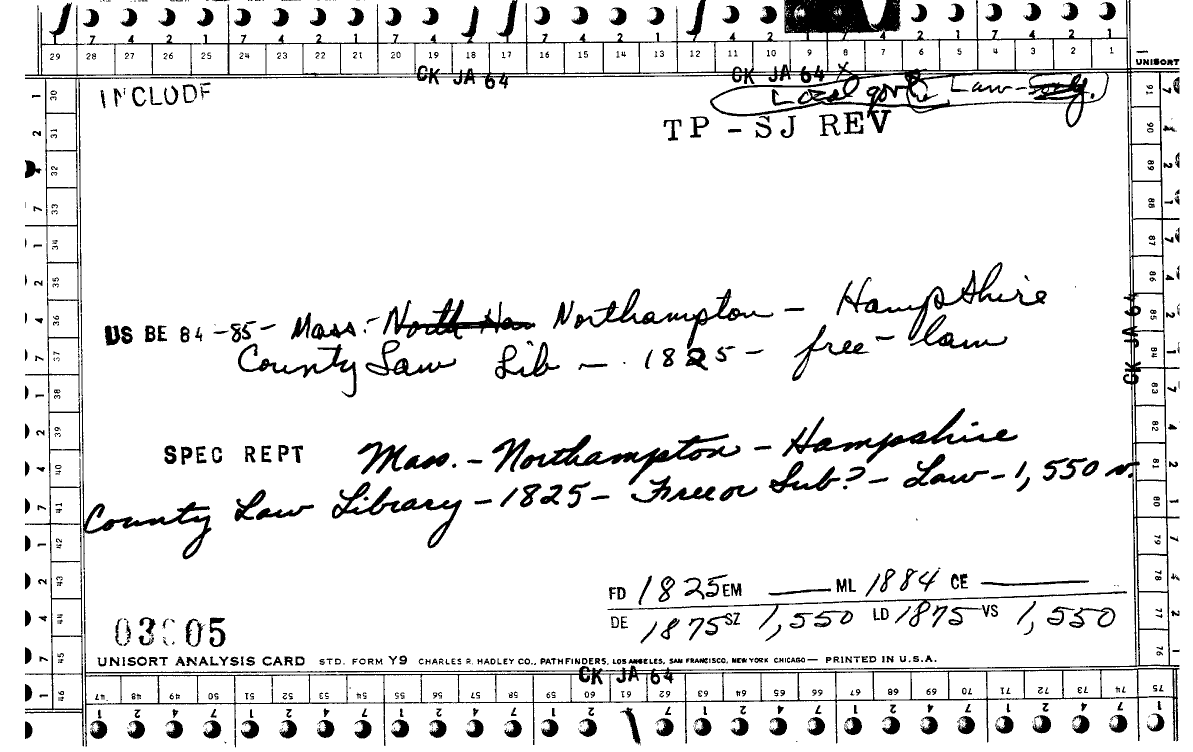 7 4 2 1 7 4 2 1 7 4 2 1 7 4 2 1 7 4 2 1 7 4 2 1 7 4 2 1
29 28 27 26 25 24 23 22 21 20 19 18 17 16 15 14 13 12 11 10 9 8 7 6 5 4 3 2 1
UNISORT
CK JA 64 CK JA 64 X
INCLUDE Local govt Law
TP - SJ REV
US BE 84-85- Mass.- North Ham Northampton - Hampshire
County Law Lib - 1825 - free - law
CK JA 64
SPEC REPT Mass. - Northampton - Hampshire
County Law Library - 1825 - Free or Sub? - Law - 1,550 v.
FD 1825 EM ML 1884 CE
DE 1875 SZ 1,550 LD 1875 VS 1,550
UNISORT ANALYSIS CARD STD. FORM Y9 CHARLES R. HADLEY CO., PATHFINDERS, LOS ANGELES, SAN FRANCISCO, NEW YORK CHICAGO — PRINTED IN U.S.A.
CK JA 64
47 48 49 50 51 52 53 54 55 56 57 58 59 60 61 62 63 64 65 66 67 68 69 70 71 72 73 74 75